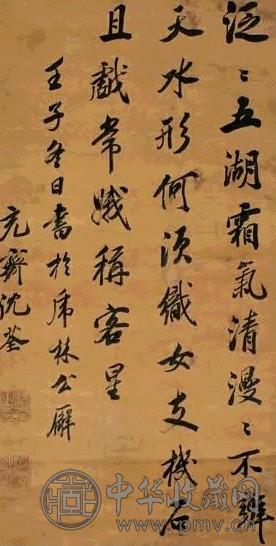 泛〻五湖霜氣清漫〻不辨
天水形何須織女支機石
且戲常娥稱客星
壬子冬日書於虎林公廨
充齋沈荃
中华收藏网
www.pmv.cn